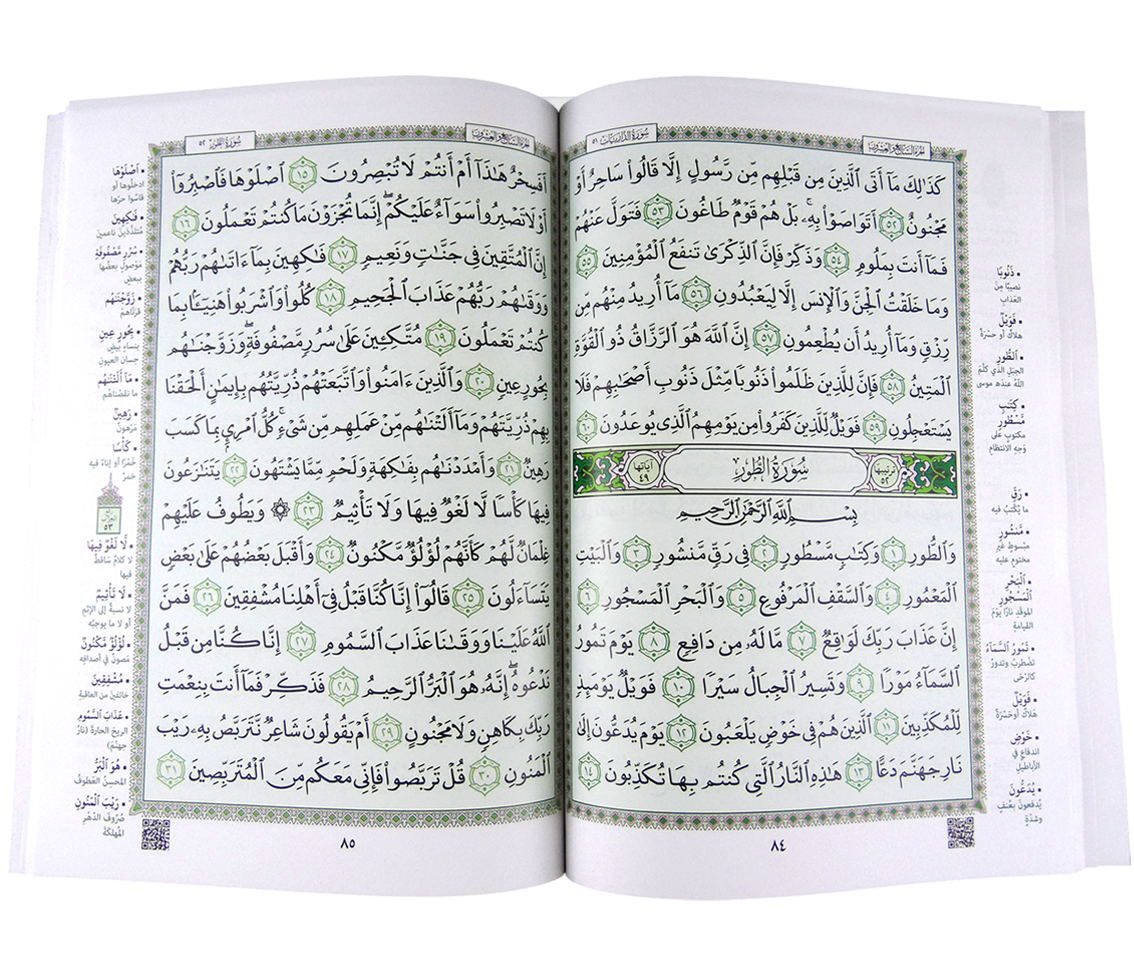 الجزء السابع والعشرون
سُورَةُ الذَّارِيَاتِ ٥١
كَذَٰلِكَ مَآ أَتَى ٱلَّذِينَ مِن قَبْلِهِم مِّن رَّسُولٍ إِلَّا قَالُوا۟ سَاحِرٌ أَوْ
مَجْنُونٌ ٥٢ أَتَوَاصَوْا۟ بِهِۦ ۚ بَلْ هُمْ قَوْمٌ طَاغُونَ ٥٣ فَتَوَلَّ عَنْهُمْ
فَمَآ أَنتَ بِمَلُومٍ ٥٤ وَذَكِّرْ فَإِنَّ ٱلذِّكْرَىٰ تَنفَعُ ٱلْمُؤْمِنِينَ ٥٥
وَمَا خَلَقْتُ ٱلْجِنَّ وَٱلْإِنسَ إِلَّا لِيَعْبُدُونِ ٥٦ مَآ أُرِيدُ مِنْهُم مِّن
رِّزْقٍ وَمَآ أُرِيدُ أَن يُطْعِمُونِ ٥٧ إِنَّ ٱللَّهَ هُوَ ٱلرَّزَّاقُ ذُو ٱلْقُوَّةِ
ٱلْمَتِينُ ٥٨ فَإِنَّ لِلَّذِينَ ظَلَمُوا۟ ذَنُوبًا مِّثْلَ ذَنُوبِ أَصْحَٰبِهِمْ فَلَا
يَسْتَعْجِلُونِ ٥٩ فَوَيْلٌ لِّلَّذِينَ كَفَرُوا۟ مِن يَوْمِهِمُ ٱلَّذِى يُوعَدُونَ ٦٠
ترتيبها ٥٢ سُورَةُ الطُّورِ آياتها ٤٩
بِسْمِ ٱللَّهِ ٱلرَّحْمَٰنِ ٱلرَّحِيمِ
وَٱلطُّورِ ١ وَكِتَٰبٍ مَّسْطُورٍ ٢ فِى رَقٍّ مَّنشُورٍ ٣ وَٱلْبَيْتِ
ٱلْمَعْمُورِ ٤ وَٱلسَّقْفِ ٱلْمَرْفُوعِ ٥ وَٱلْبَحْرِ ٱلْمَسْجُورِ ٦
إِنَّ عَذَابَ رَبِّكَ لَوَٰقِعٌ ٧ مَّا لَهُۥ مِن دَافِعٍ ٨ يَوْمَ تَمُورُ
ٱلسَّمَآءُ مَوْرًا ٩ وَتَسِيرُ ٱلْجِبَالُ سَيْرًا ١٠ فَوَيْلٌ يَوْمَئِذٍ
لِّلْمُكَذِّبِينَ ١١ ٱلَّذِينَ هُمْ فِى خَوْضٍ يَلْعَبُونَ ١٢ يَوْمَ يُدَعُّونَ إِلَىٰ
نَارِ جَهَنَّمَ دَعًّا ١٣ هَٰذِهِ ٱلنَّارُ ٱلَّتِى كُنتُم بِهَا تُكَذِّبُونَ ١٤
• ذَنُوبًا
نصيبًا مِنَ
العَذابِ
• فَوَيْلٌ
هَلاكٌ أو حَسْرَةٌ
• الطُّورِ
الجَبَلِ الَّذي كَلَّمَ
اللهُ عندَه موسى
• كِتَٰبٍ
مَّسْطُورٍ
مكتوبٍ على
وَجهِ الانتظامِ
• رَقٍّ
ما يُكْتَبُ فيه
• مَّنشُورٍ
مبسوطٍ غيرِ
مختومٍ عليه
• الْبَحْرِ
الْمَسْجُورِ
الموقَدِ نارًا يَوْمَ
القيامةِ
• تَمُورُ السَّمَآءُ
تضْطَرِبُ وتدورُ
كالرَّحَى
• فَوَيْلٌ
هَلاكٌ أو حَسْرَةٌ
• خَوْضٍ
اندفاعٍ في
الأباطيلِ
• يُدَعُّونَ
يُدفعونَ بِعُنفٍ
وشدَّةٍ
٨٤
الجزء السابع والعشرون
سُورَةُ الطُّورِ ٥٢
أَفَسِحْرٌ هَٰذَآ أَمْ أَنتُمْ لَا تُبْصِرُونَ ١٥ ٱصْلَوْهَا فَٱصْبِرُوٓا۟
أَوْ لَا تَصْبِرُوا۟ سَوَآءٌ عَلَيْكُمْ ۖ إِنَّمَا تُجْزَوْنَ مَا كُنتُمْ تَعْمَلُونَ ١٦
إِنَّ ٱلْمُتَّقِينَ فِى جَنَّٰتٍ وَنَعِيمٍ ١٧ فَٰكِهِينَ بِمَآ ءَاتَىٰهُمْ رَبُّهُمْ
وَوَقَىٰهُمْ رَبُّهُمْ عَذَابَ ٱلْجَحِيمِ ١٨ كُلُوا۟ وَٱشْرَبُوا۟ هَنِيٓـًٔۢا بِمَا
كُنتُمْ تَعْمَلُونَ ١٩ مُتَّكِـِٔينَ عَلَىٰ سُرُرٍ مَّصْفُوفَةٍ ۖ وَزَوَّجْنَٰهُم
بِحُورٍ عِينٍ ٢٠ وَٱلَّذِينَ ءَامَنُوا۟ وَٱتَّبَعَتْهُمْ ذُرِّيَّتُهُم بِإِيمَٰنٍ أَلْحَقْنَا
بِهِمْ ذُرِّيَّتَهُمْ وَمَآ أَلَتْنَٰهُم مِّنْ عَمَلِهِم مِّن شَىْءٍ ۚ كُلُّ ٱمْرِئٍۭ بِمَا كَسَبَ
رَهِينٌ ٢١ وَأَمْدَدْنَٰهُم بِفَٰكِهَةٍ وَلَحْمٍ مِّمَّا يَشْتَهُونَ ٢٢ يَتَنَٰزَعُونَ
فِيهَا كَأْسًا لَّا لَغْوٌ فِيهَا وَلَا تَأْثِيمٌ ٢٣ ۞ وَيَطُوفُ عَلَيْهِمْ
غِلْمَانٌ لَّهُمْ كَأَنَّهُمْ لُؤْلُؤٌ مَّكْنُونٌ ٢٤ وَأَقْبَلَ بَعْضُهُمْ عَلَىٰ بَعْضٍ
يَتَسَآءَلُونَ ٢٥ قَالُوٓا۟ إِنَّا كُنَّا قَبْلُ فِىٓ أَهْلِنَا مُشْفِقِينَ ٢٦ فَمَنَّ
ٱللَّهُ عَلَيْنَا وَوَقَىٰنَا عَذَابَ ٱلسَّمُومِ ٢٧ إِنَّا كُنَّا مِن قَبْلُ
نَدْعُوهُ ۖ إِنَّهُۥ هُوَ ٱلْبَرُّ ٱلرَّحِيمُ ٢٨ فَذَكِّرْ فَمَآ أَنتَ بِنِعْمَتِ
رَبِّكَ بِكَاهِنٍ وَلَا مَجْنُونٍ ٢٩ أَمْ يَقُولُونَ شَاعِرٌ نَّتَرَبَّصُ بِهِۦ رَيْبَ
ٱلْمَنُونِ ٣٠ قُلْ تَرَبَّصُوا۟ فَإِنِّى مَعَكُم مِّنَ ٱلْمُتَرَبِّصِينَ ٣١
• اصْلَوْهَا
ادخلوها أو
قاسُوا حرَّها
• فَٰكِهِينَ
مُتَلَذِّذينَ ناعمينَ
• سُرُرٍ مَّصْفُوفَةٍ
موصولٍ بعضُها
ببعضٍ
• زَوَّجْنَٰهُم
قرنَّاهُم
• بِحُورٍ عِينٍ
بنساءٍ بيضٍ
حسانِ العيونِ
• مَآ أَلَتْنَٰهُم
ما نقصناهُم
• رَهِينٌ
مَرْهونٌ
• كَأْسًا
خَمْرًا أو إناءً فيه
خمرٌ
ربع
الحزب
٥٣
• لَّا لَغْوٌ فِيهَا
لا كلامٌ ساقطٌ
فيها
• لَا تَأْثِيمٌ
لا نسبةٌ إلى الإثمِ
أو لا ما يوجبُه
• لُؤْلُؤٌ مَّكْنُونٌ
مَصونٌ في أصدافِه
• مُشْفِقِينَ
خائفينَ من العاقبةِ
• عَذَابَ السَّمُومِ
الريحِ الحارةِ (نارِ
جهنَّمَ)
• هُوَ الْبَرُّ
المُحْسِنُ العَطوفُ
• رَيْبَ الْمَنُونِ
صُروفَ الدَّهْرِ
المُهْلِكةَ
٨٥